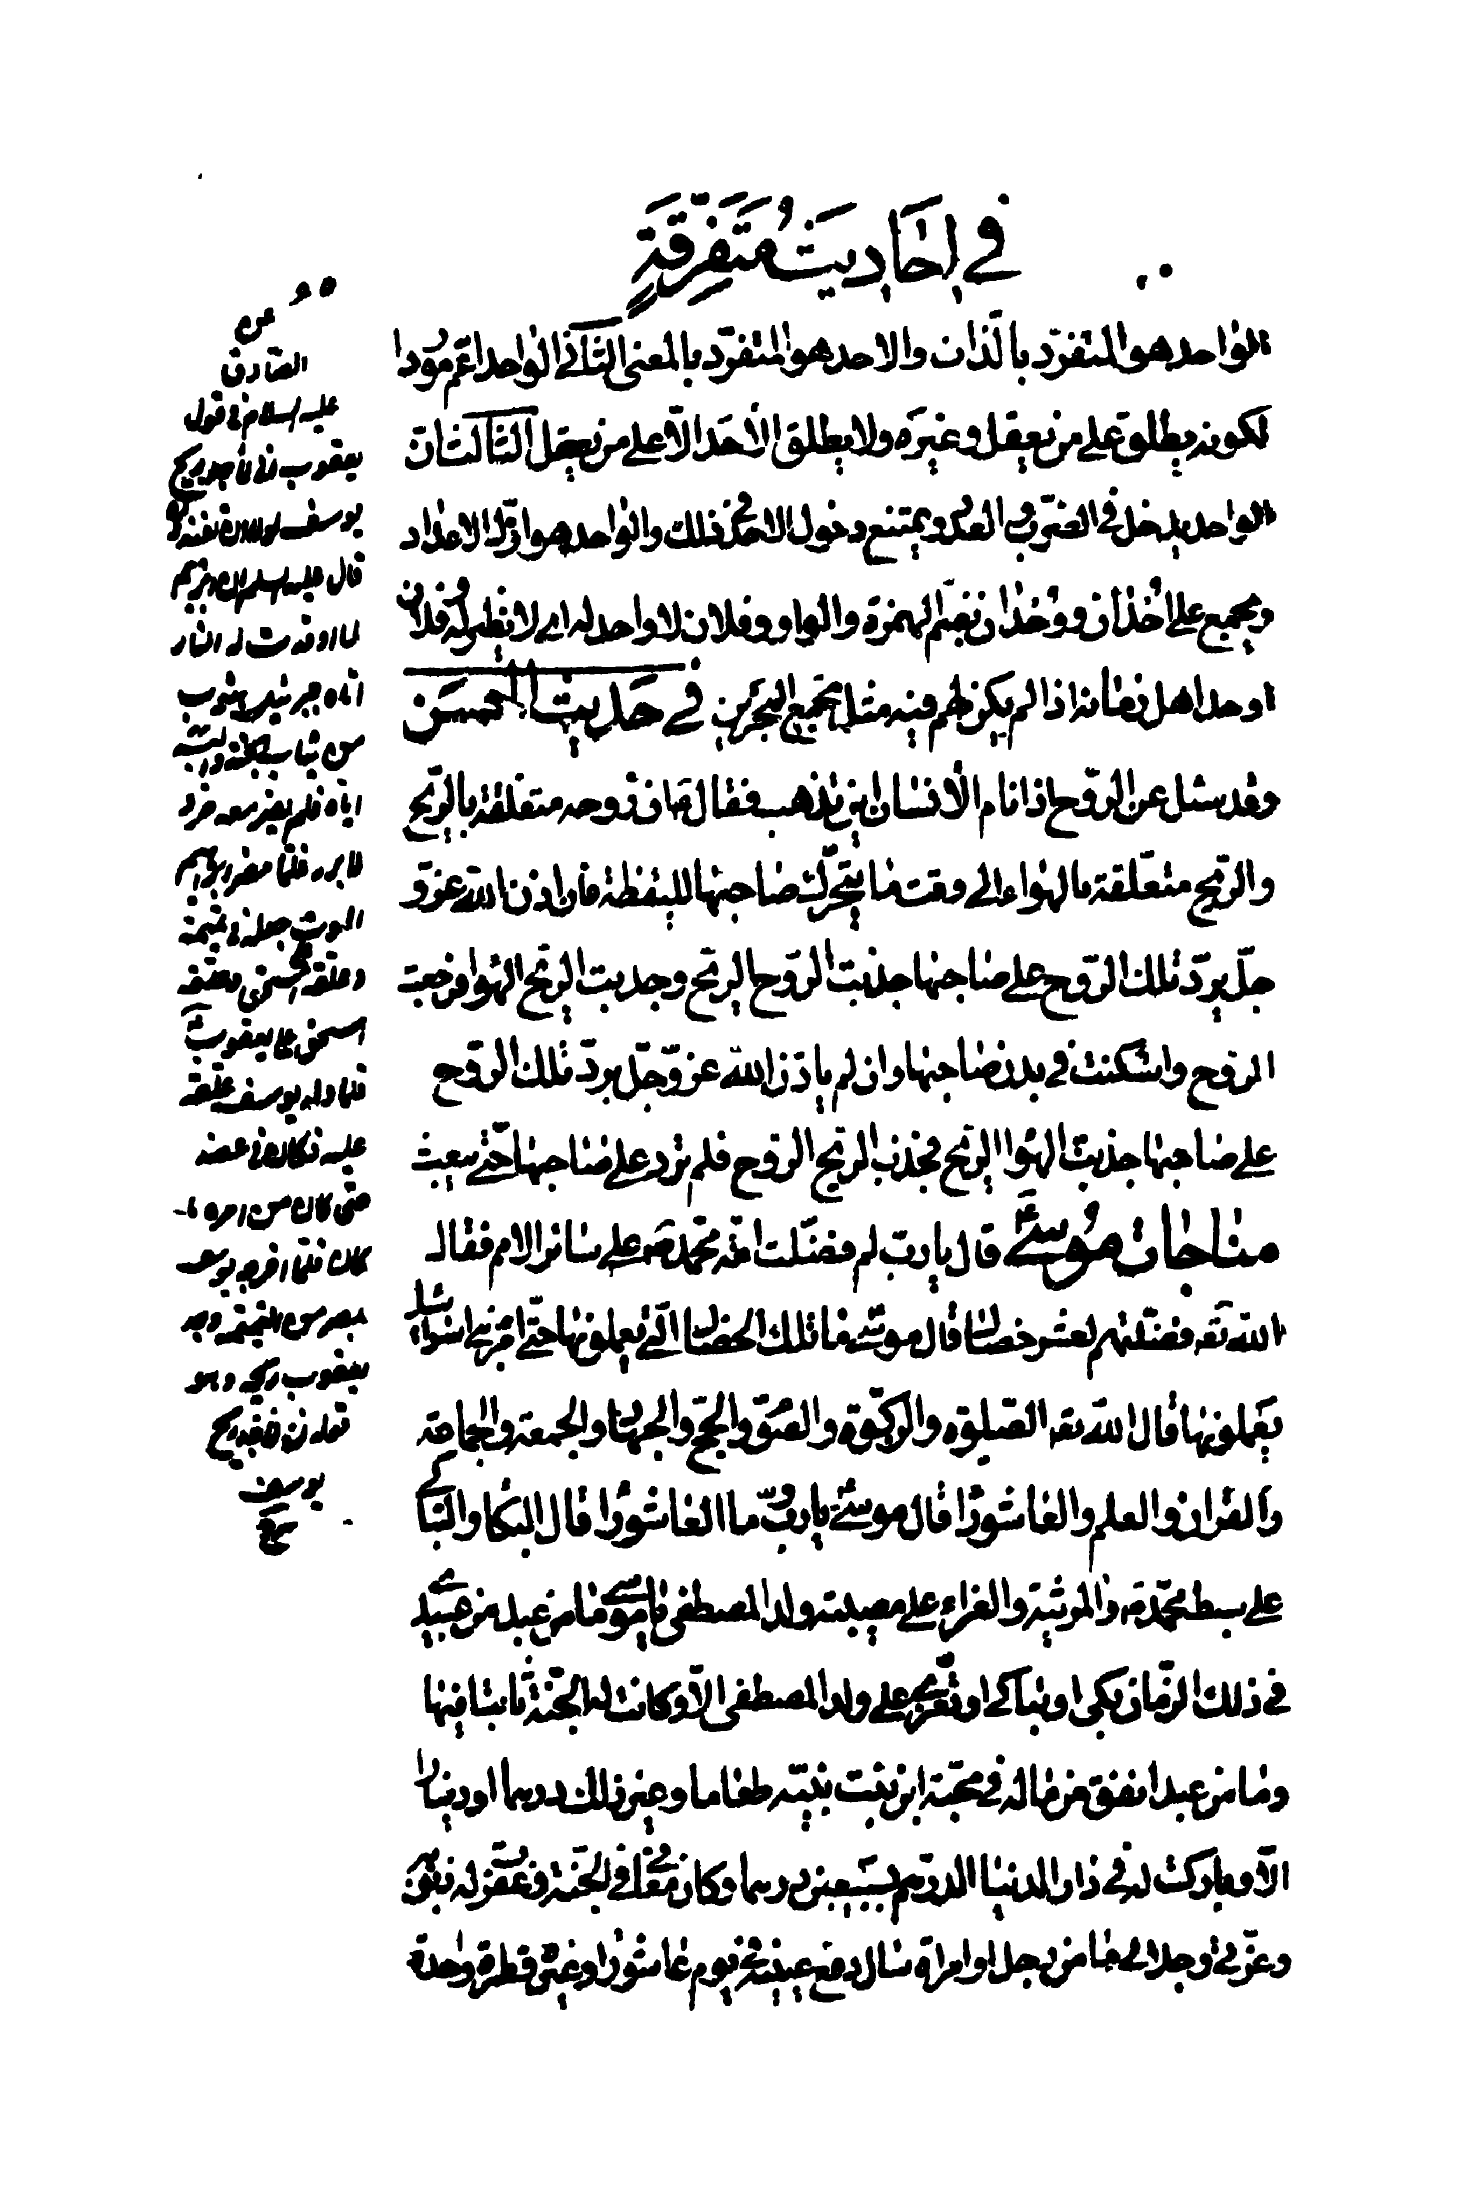 في احاديث متفرقة
الواحد هو المتفرد بالذات والاحد هو المتفرد بالمعنى الثاني الواحد اعم موردا
لكونه يطلق على من يعقل وغيره ولا يطلق الاحد الا على من يعقل الثالث ان
الواحد يدخل في الضرب والعدد ويمتنع دخول الاحد في ذلك والواحد هو اول الاعداد
ويجمع على احدان ووحدان بضم الهمزة والواو وفلان لا واحد له اي لا نظير له وفلان
اوحد اهل زمانه اذا لم يكن لهم فيه مثل مجمع البحرين في حديث الحسن
وقد سئل عن الروح اذا نام الانسان اين تذهب فقال فان روحه متعلقة بالريح
والريح متعلقة بالهواء الى وقت ما يتحرك صاحبها لليقظة فان اذن الله عز و
جل يرد تلك الروح على صاحبها جذبت الروح الريح وجذبت الريح الهوا فرجعت
الروح واسكنت في بدن صاحبها وان لم ياذن الله عز وجل برد تلك الروح
على صاحبها جذبت الهوا الريح فجذبت الريح الروح فلم ترد على صاحبها حتى يبعث
مناجات موسى ع قال يا رب لم فضلت امة محمد ص على سائر الامم فقال
الله تعه فضلتهم لعشر خصال قال موسى ما تلك الخصال التي يعملونها حتى امر بني اسرائيل
يعملونها قال الله تعه الصلوة والزكوة والصوم والحج والجهاد والجمعة والجماعة
والقران والعلم والعاشورا قال موسى يا رب ما العاشورا قال البكا والتباكي
على سبط محمد ص والمرثية والعزاء على مصيبة ولد المصطفى يا موسى ما من عبد من عبيدي
في ذلك الزمان بكى او تباكى او تعزى على ولد المصطفى الا وكانت له الجنة ثابتا فيها
وما من عبد انفق من ماله في محبة ابن بنت نبيه طعاما وغير ذلك درهما او دينارا
الا وباركت له في دار الدنيا الدرهم بسبعين درهما وكان معافا في الجنة وغفرت له ذنوبه
وعزتي وجلالي ما من رجل او امراة سال دمع عينيه في يوم عاشورا وغيره قطرة واحدة
عن
الصادق
عليه السلام في قول
يعقوب اني لاجد ريح
يوسف لولا ان تفندون
قال عليه السلم ان ابرهيم
لما اوقدت له النار
اتاه جبرئيل بثوب
من ثياب الجنة والبسه
اياه فلم يضر معه حر و
لا برد فلما حضر ابراهيم
الموت جعله في تميمة
وعلقه اسحق وعلقه
اسحق على يعقوب
فلما ولد يوسف علقه
عليه فكان في عضده
حتى كان من امره ما
كان فلما اخرجه يوسف
بمصر من التميمة وجد
يعقوب ريحه وهو
قوله اني لاجد ريح
يوسف